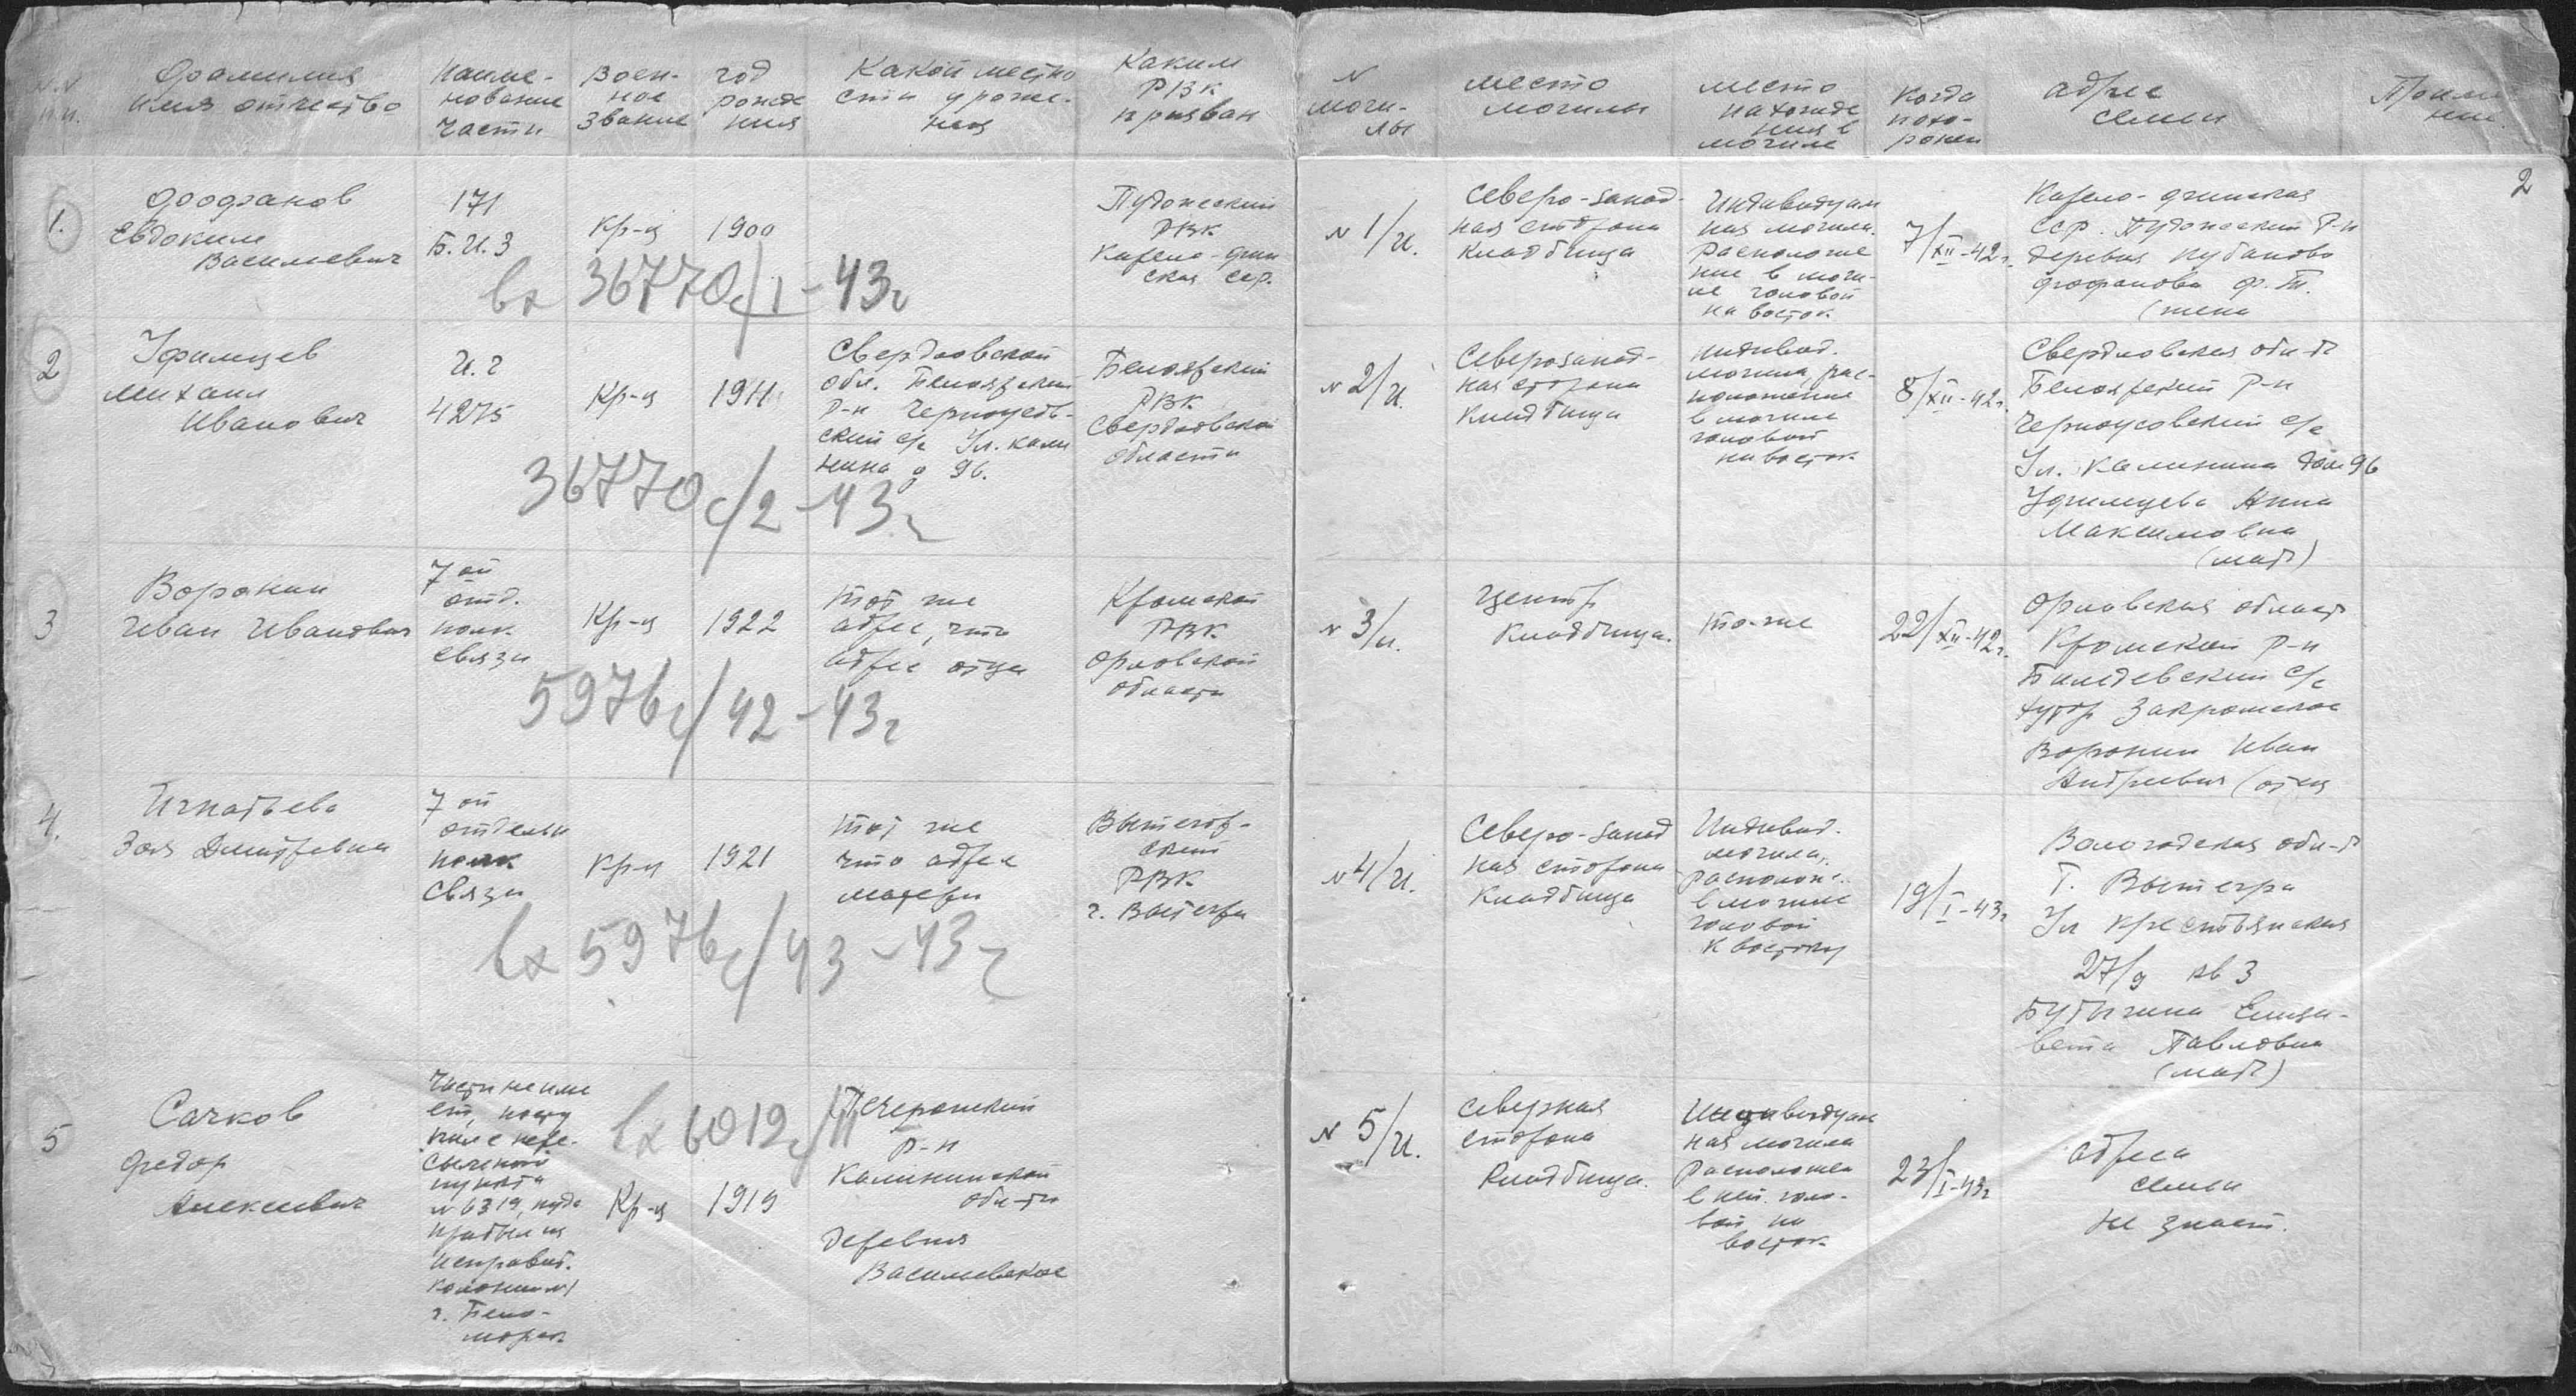 №№ п.п.
Фамилия
имя отчество
Наиме-
нование
части
Воен-
ное
звание
год
рожде
ния
Какой местно
сти уроже-
нец
Каким
РВК
призван
N
моги-
лы
место
могилы
место
нахожде
ния в
могиле
Когда
похо-
ронен
адрес
семьи
2
1.
Фофанов
Евдоким
Васильевич
171
Б.И.З
Кр-ц
1900
Пудожский
РВК
Карело-фин
ская ССР.
вх 36770с/1-43г
N 1/и.
Северо-запад-
ная сторона
Кладбища
Индивидуаль
ная могила.
Расположе
ние в моги-
ле головой
на восток.
7/XII-42г.
Карело-финская
ССР. Пудожский р-н
деревня Кубаново
Фофанова Ф. Т.
(жена
2
Уфимцев
Михаил
Иванович
п.п
4275
Кр-ц
1911
Свердловской
обл. Белоярский
р-н Черноусов-
ский с/с Ул. Кали
нина д 96.
Белоярский
РВК
Свердловской
области
36770с/2-43г
N 2/и.
Северозапад-
ная сторона
Кладбища
Индивид.
могила, рас-
положение
в могиле
головой
на восток.
8/XII-42г.
Свердловская обл-ть
Белоярский р-н
Черноусовский с/с
Ул. Калинина дом 96
Уфимцева Анна
Максимовна
(мать)
3
Воронин
Иван Иванович
7 ой
отд.
полк.
связи
Кр-ц
1922
тот же
адрес, что
адрес отца
Кромской
РВК
Орловской
области
5976с/42-43г
N 3/и.
Центр
Кладбища.
то-же
22/XII-42г.
Орловская область
Кромской р-н
с/с
хутор Закромское
Воронин Иван
Андреевич (отец
4.
Игнатьева
Зоя Дмитревна
7 ой
отдельн
полк
связи
Кр-ц
1921
тот же
что адрес
матери
Вытегор-
ский
РВК
г. Вытегры
вх 5976с/43-43г
N 4/и.
Северо-запад
ная сторона
Кладбища
Индивид.
могила,
располож.
в могиле
головой
к востоку
19/I-43г
Вологодская обл-ть
г. Вытегра
Ул Крестьянская
27/9 кв 3
Бутыгина Елиза-
вета Павловна
(мать)
5
Сачков
Федор
Алексеевич
Части не име
ет, посту
пил с пере-
сыльного
пункта
N 6319, куда
прибыл из
исправит.
колонии
г. Бело-
морск
Кр-ц
1919
вх 6019с/11
р-н
Калининской
обл-ти
деревня
Васильевское
N 5/и.
Северная
сторона
Кладбища.
Индивидуаль
ная могила
Расположен
в ней голо-
вой на
восток.
23/I-43г
Адреса
семьи
не знает.